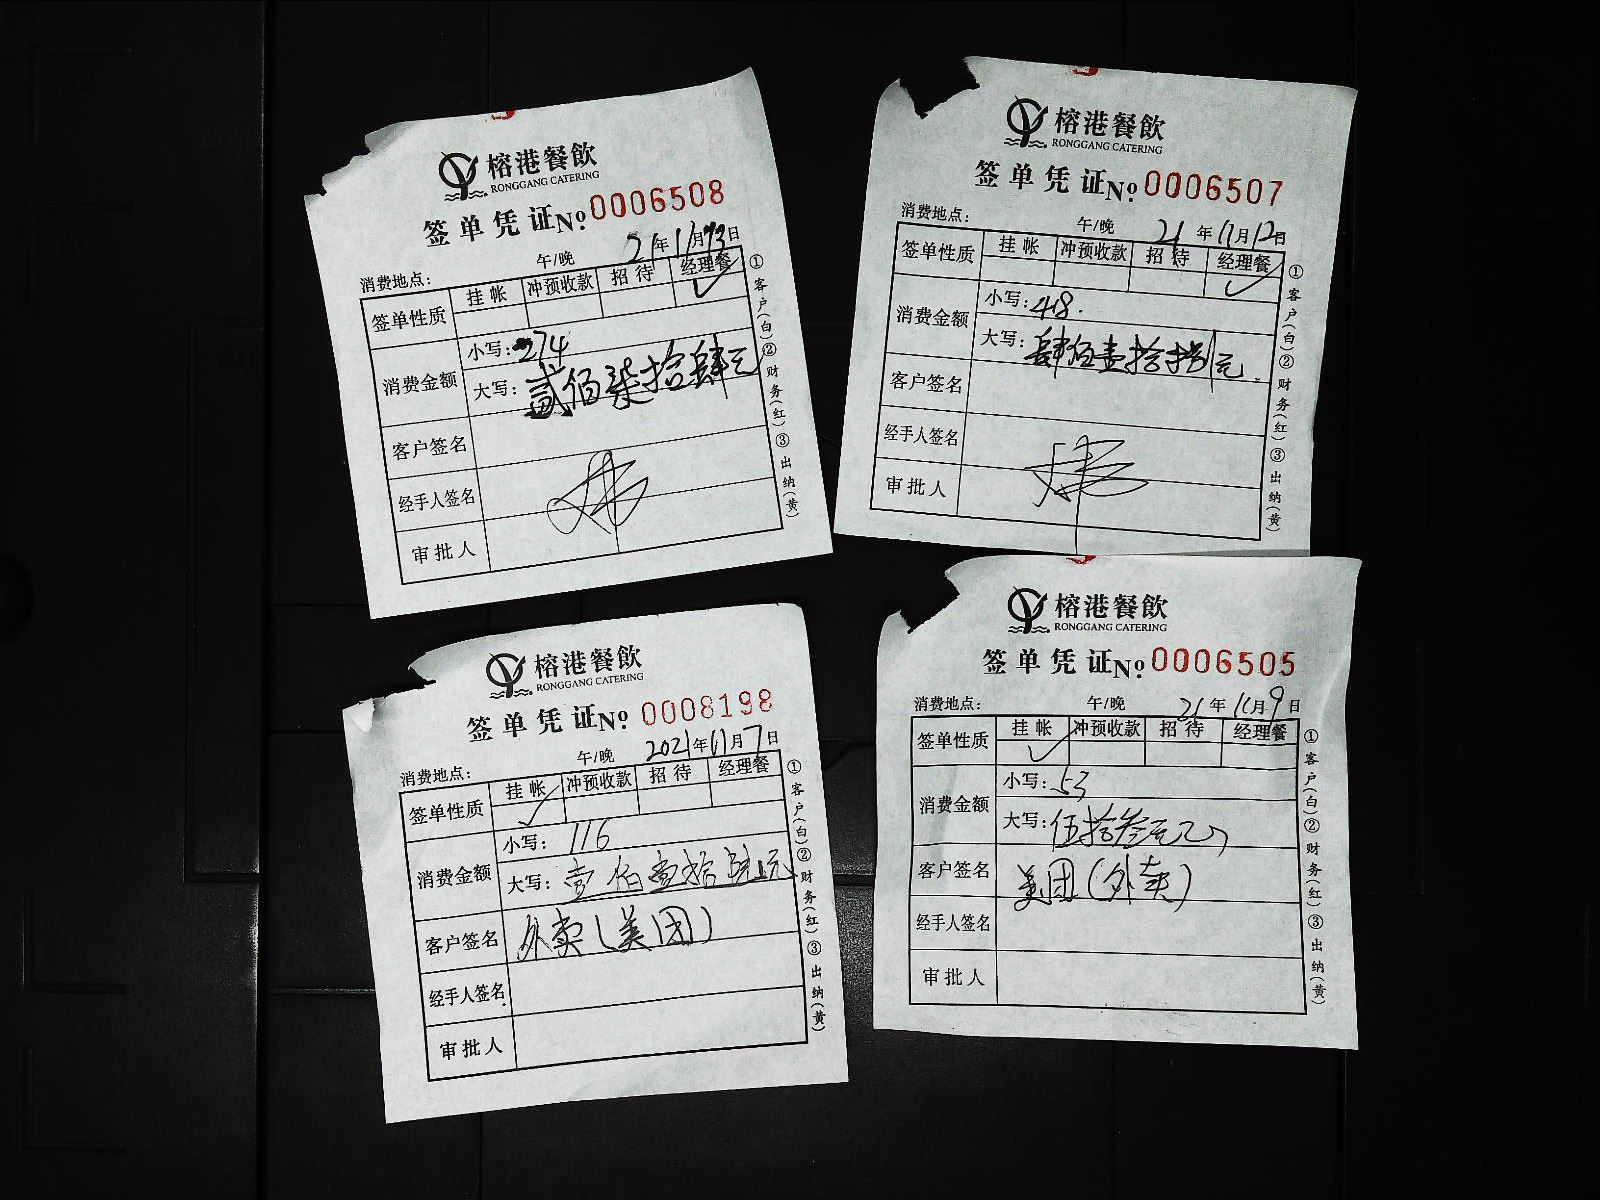 榕港餐飲
RONGGANG CATERING
签单凭证 No. 0006508
午/晚 21年11月13日
消费地点：
签单性质 挂帐 冲预收款 招待 经理餐
✓
消费金额 小写：274
大写：贰佰柒拾肆元
客户签名
经手人签名
审批人
①客户(白)②财务(红)③出纳(黄)
榕港餐飲
RONGGANG CATERING
签单凭证 No. 0006507
消费地点： 午/晚 21年11月12日
签单性质 挂帐 冲预收款 招待 经理餐
✓
消费金额 小写：418.
大写：肆佰壹拾捌元.
客户签名
经手人签名
审批人
①客户(白)②财务(红)③出纳(黄)
榕港餐飲
RONGGANG CATERING
签单凭证 No. 0008198
午/晚 2021年11月7日
消费地点：
签单性质 挂帐 冲预收款 招待 经理餐
✓
消费金额 小写：116
大写：壹佰壹拾陆元
客户签名 外卖(美团)
经手人签名
审批人
①客户(白)②财务(红)③出纳(黄)
榕港餐飲
RONGGANG CATERING
签单凭证 No. 0006505
消费地点： 午/晚 21年11月9日
签单性质 挂帐 冲预收款 招待 经理餐
✓
消费金额 小写：53
大写：伍拾叁元
客户签名 美团(外卖)
经手人签名
审批人
①客户(白)②财务(红)③出纳(黄)